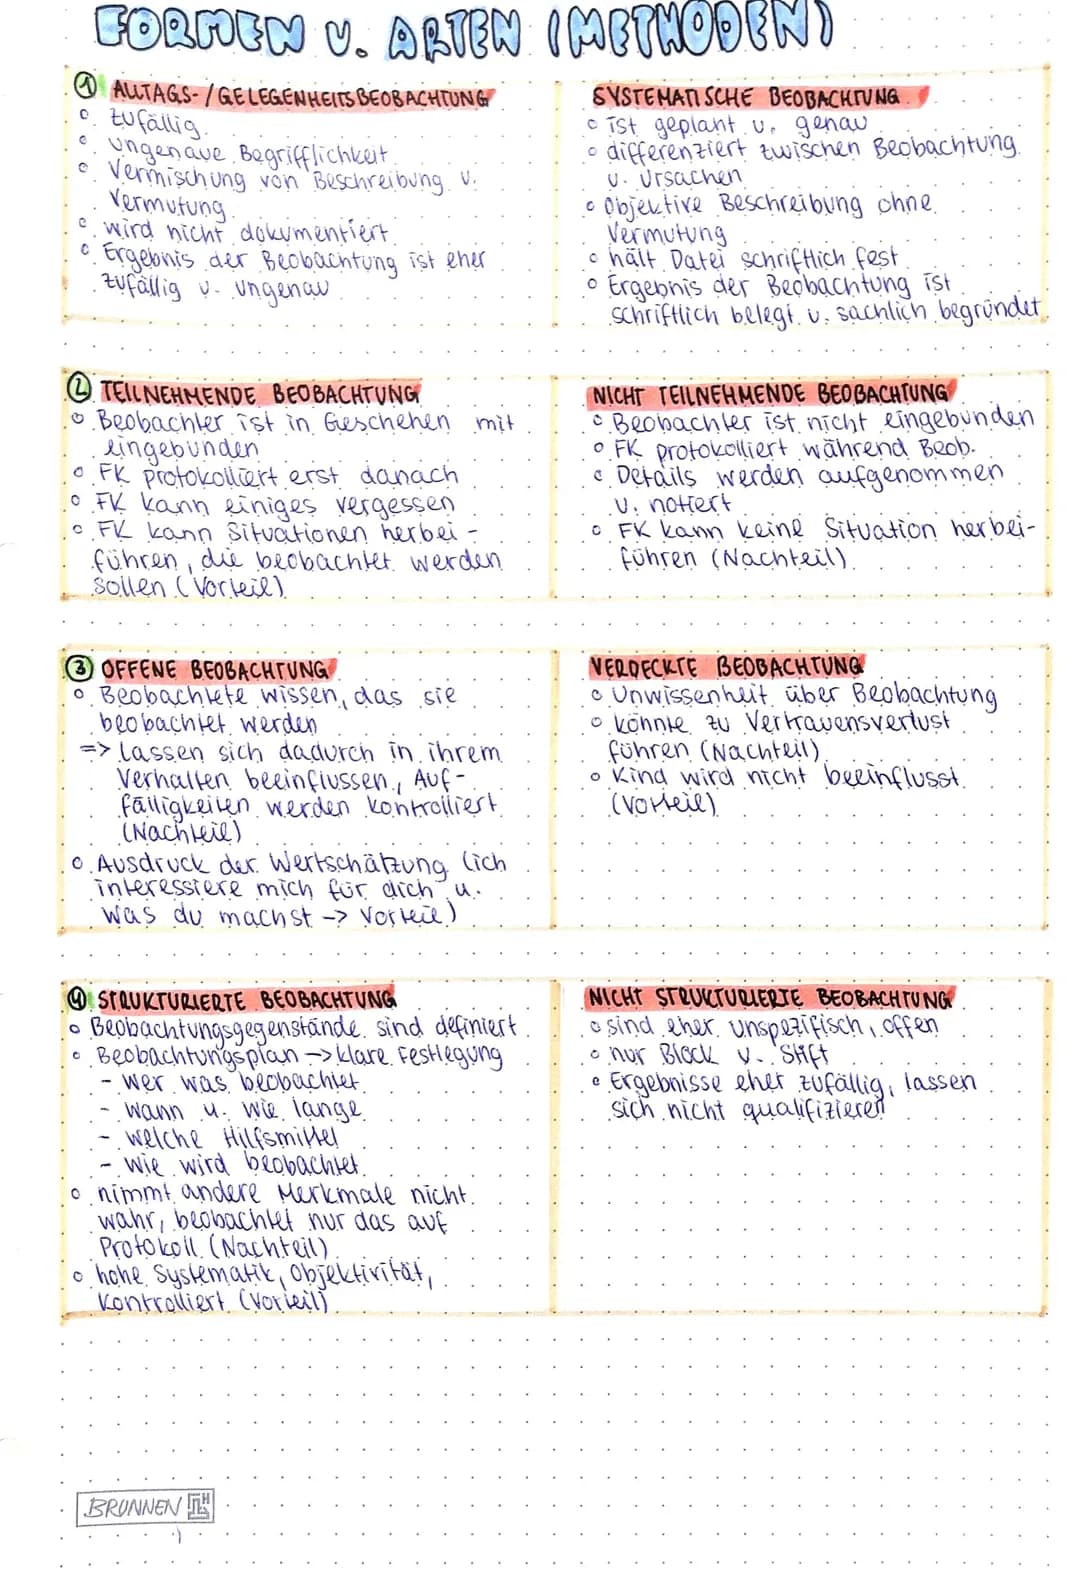 FORMEN U. ARTEN (METHODEN)
① ALLTAGS-/GELEGENHEITSBEOBACHTUNG
zufällig
ungenaue Begrifflichkeit
Vermischung von Beschreibung u.
Vermutung
wird nicht dokumentiert
Ergebnis der Beobachtung ist eher
zufällig u. ungenau
SYSTEMATISCHE BEOBACHTUNG
ist geplant u. genau
differenziert zwischen Beobachtung
u. Ursachen
Objektive Beschreibung ohne
Vermutung
hält Datei schriftlich fest
Ergebnis der Beobachtung ist
schriftlich belegt u. sachlich begründet
② TEILNEHMENDE BEOBACHTUNG
Beobachter ist in Geschehen mit
eingebunden
FK protokolliert erst danach
FK kann einiges vergessen
FK kann Situationen herbei-
führen, die beobachtet werden
sollen (Vorteil)
NICHT TEILNEHMENDE BEOBACHTUNG
Beobachter ist nicht eingebunden
FK protokolliert während Beob.
Details werden aufgenommen
u. notiert
FK kann keine Situation herbei-
führen (Nachteil)
③ OFFENE BEOBACHTUNG
Beobachtete wissen, das sie
beobachtet werden
=> lassen sich dadurch in ihrem
Verhalten beeinflussen, Auf-
fälligkeiten werden kontrolliert
(Nachteil)
Ausdruck der Wertschätzung (ich
interessiere mich für dich u.
was du machst -> Vorteil)
VERDECKTE BEOBACHTUNG
Unwissenheit über Beobachtung
könnte zu Vertrauensverlust
führen (Nachteil)
Kind wird nicht beeinflusst
(Vorteil)
④ STRUKTURIERTE BEOBACHTUNG
Beobachtungsgegenstände sind definiert
Beobachtungsplan -> klare Festlegung
- wer was beobachtet
- wann u. wie lange
- welche Hilfsmittel
- wie wird beobachtet
nimmt andere Merkmale nicht
wahr, beobachtet nur das auf
Protokoll (Nachteil)
hohe Systematik, Objektivität,
kontrolliert (Vorteil)
NICHT STRUKTURIERTE BEOBACHTUNG
sind eher unspezifisch, offen
nur Block u. Stift
Ergebnisse eher zufällig, lassen
sich nicht qualifizieren
BRUNNEN